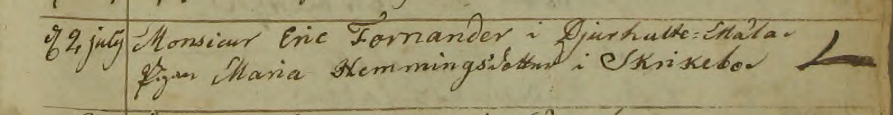 2 july Monsieur Eric Fornander i Djurhulte-Måla
Pigan Maria Hemmingsdotter i Skrikebo